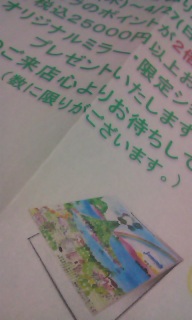 (水)～4/7(日
のポイントが2倍
税込25000円以上お
オリジナルミラー、限定ショ
プレゼントいたします
のご来店心よりお待ちして
(数に限りがございます。)